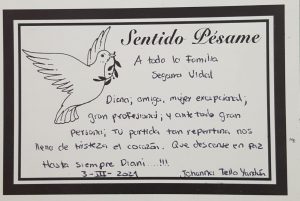 Sentido Pésame
A todo la Familia
Segarra Vidal
Diana; amiga, mujer excepcional,
gran profesional; y ante todo gran
persona; Tu partida tan repentina, nos
lleno de tristeza el corazón. Que descanse en paz
Hasta siempre Diani....!!!
3-III-2021 Johanna Tello